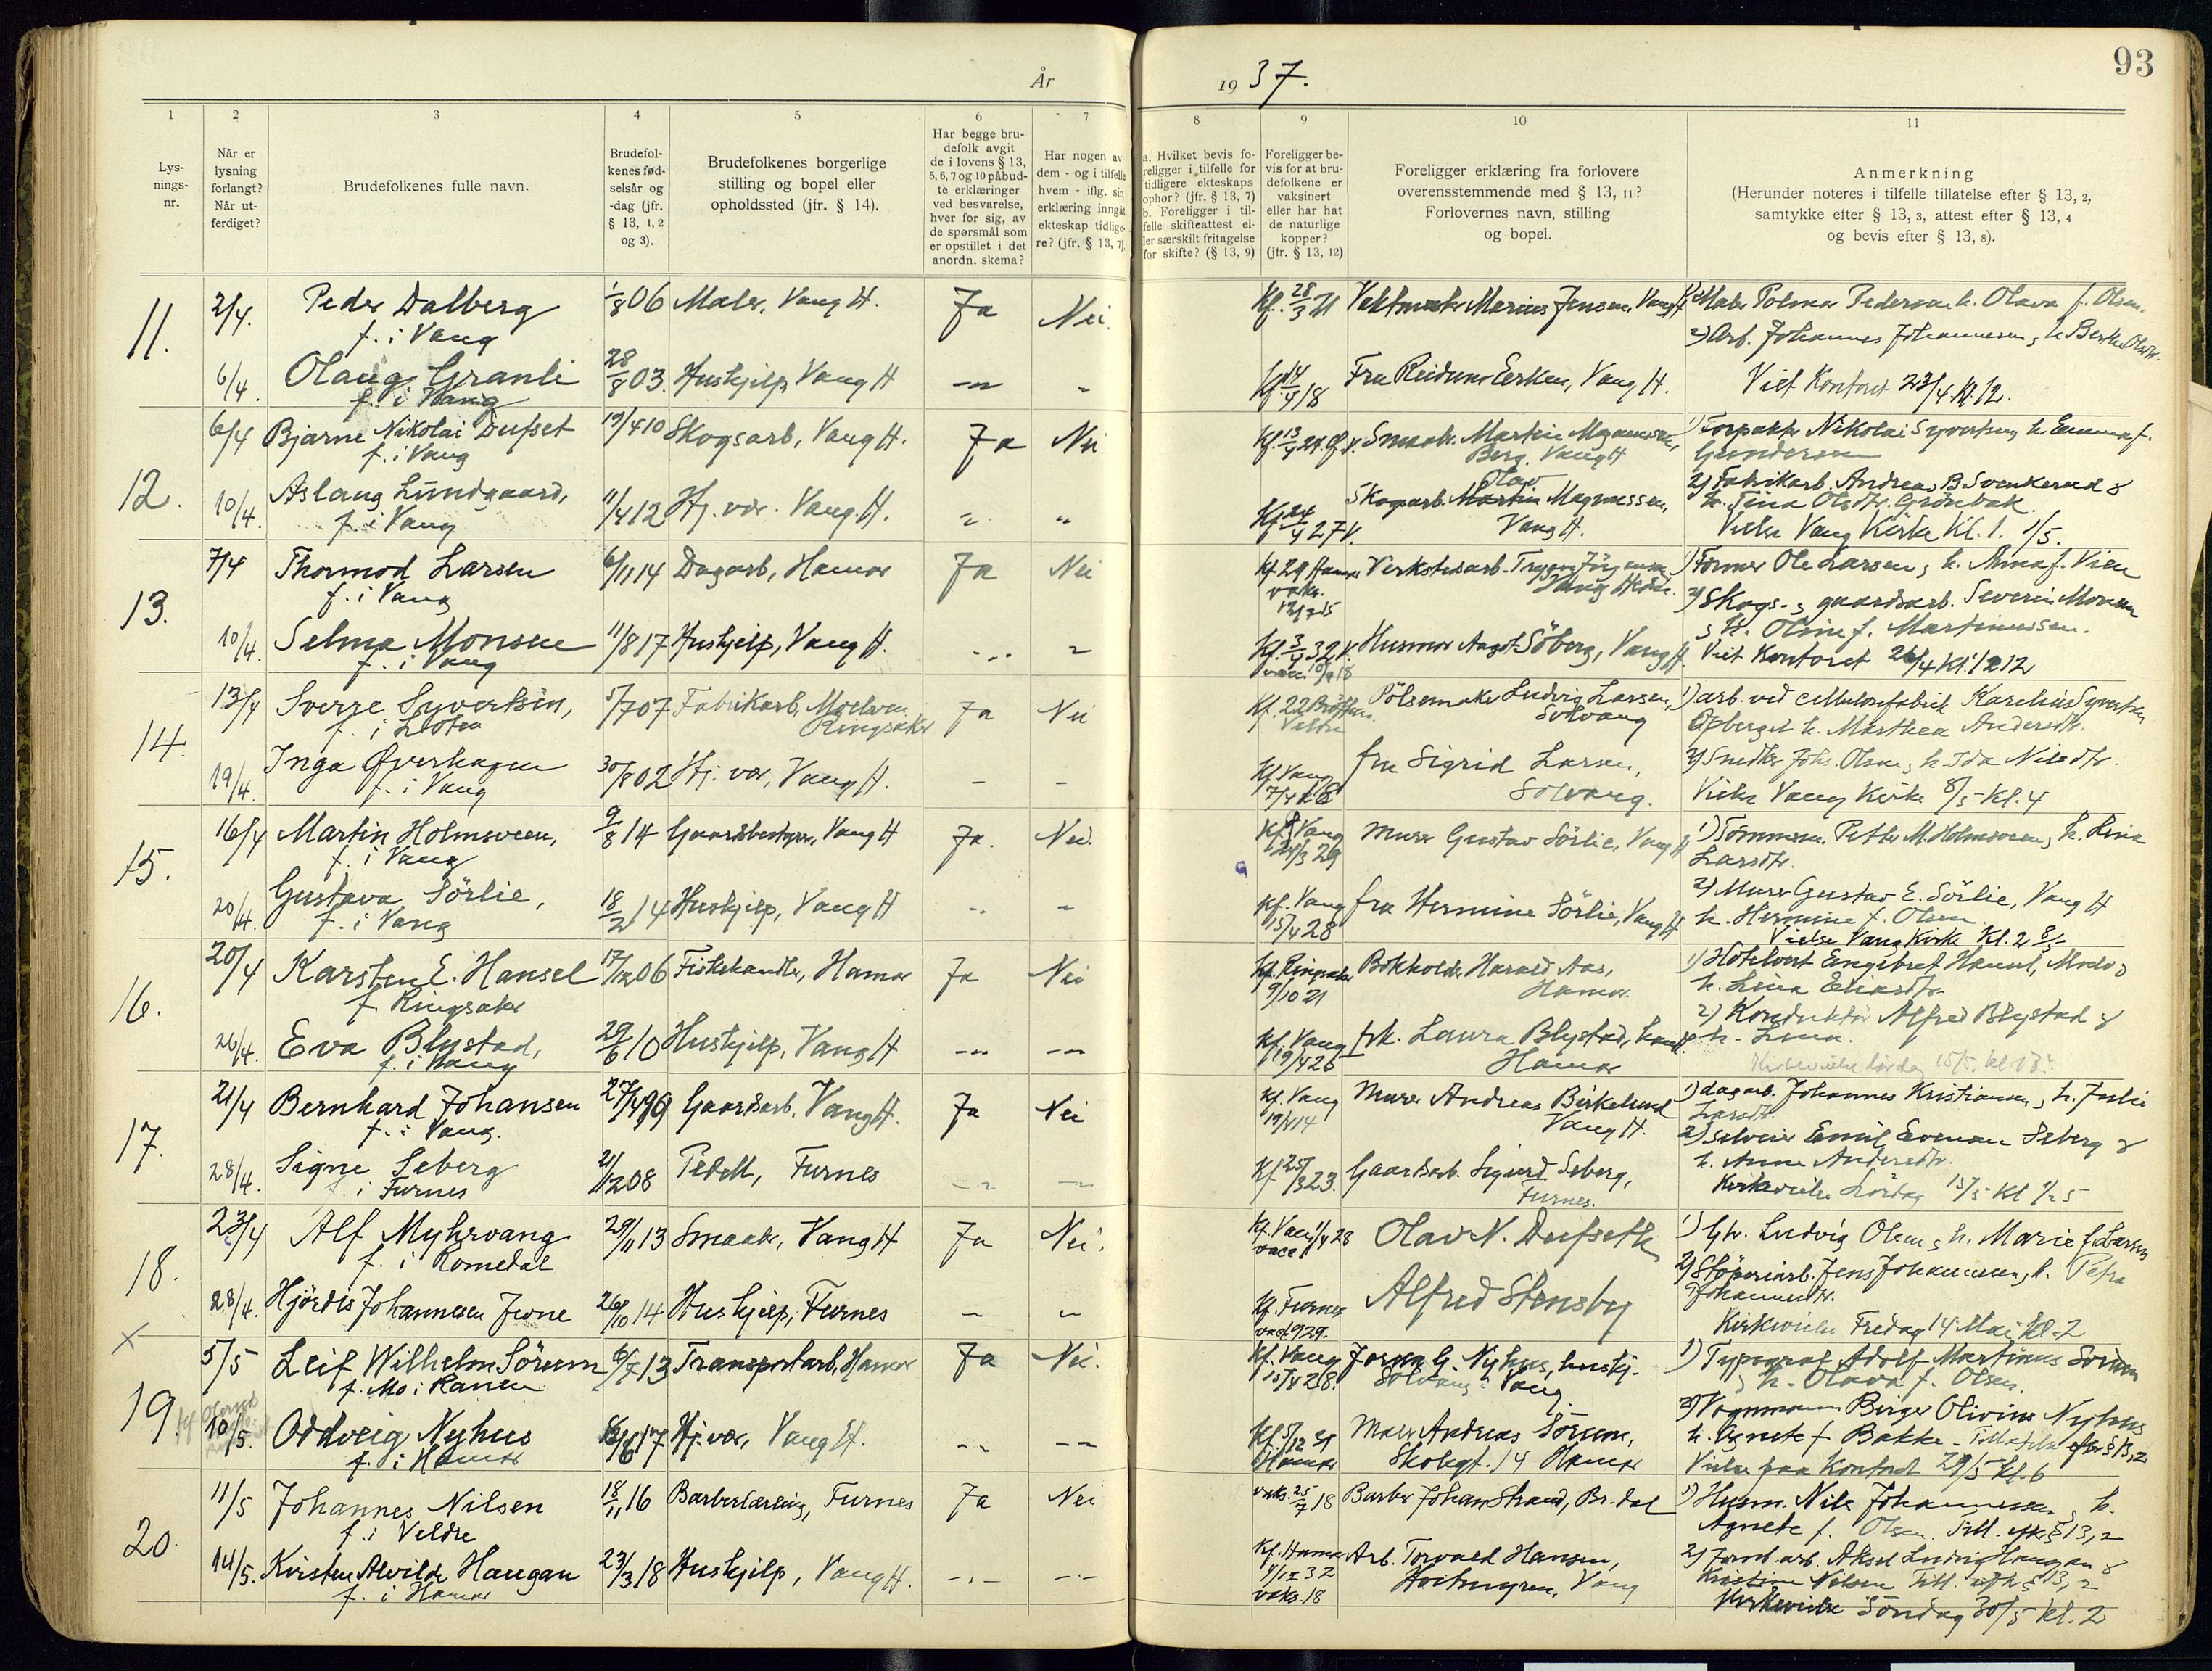 93
År
19 37.
1
2
3
4
5
6
7
8
9
10
11
Lys-
nings-
nr.
Når er
lysning
forlangt?
Når ut-
ferdiget?
Brudefolkenes fulle navn.
Brudefol-
kenes fød-
selsår og
-dag (jfr.
§ 13, 1, 2
og 3).
Brudefolkenes borgerlige
stilling og bopel eller
opholdssted (jfr. § 14).
Har begge bru-
defolk avgit
de i lovens § 13,
5, 6, 7 og 10 påbud-
te erklæringer
ved besvarelse,
hver for sig, av
de spørsmål som
er opstillet i det
anordn. skema?
Har nogen av
dem - og i tilfelle
hvem - iflg. sin
erklæring inngåt
ekteskap tidlige-
re? (jfr. § 13, 7).
a. Hvilket bevis fo-
religger i tilfelle for
tidligere ekteskaps
ophør? (jfr. § 13, 7)
b. Foreligger i til-
felle skifteattest el-
ler særskilt fritagelse
for skifte? (§ 13, 9)
Foreligger be-
vis for at bru-
defolkene er
vaksinert
eller har hat
de naturlige
kopper?
(jfr. § 13, 12)
Foreligger erklæring fra forlovere
overensstemmende med § 13, 11?
Forlovernes navn, stilling
og bopel.
Anmerkning
(Herunder noteres i tilfelle tillatelse efter § 13, 2,
samtykke efter § 13, 3, attest efter § 13, 4
og bevis efter § 13, 8).
11.
2/4. Peder Dalberg 1/8 06 Maler, Vang H. Ja Nei. Kf. 28/3 21 Marius Jensen, Vang H. 1) Maler Pedersen h. Olava f. Olsen.
f. i Vang
2) Arb. Johannes Johannessen, h. Berthe Olsdtr.
6/4. Olaug Granli 28/8 03. Hushjelp, Vang H Fru Reidun Eerken, Vang H. Viet Kontoret 23/4 Kl. 12.
f. i Vang
12.
6/4 Bjarne Nikolai Dufset 19/4 10 Skogsarb, Vang H. Ja Nei Smaabr. Martin Magnussen, 1) Forpakter Nikolai Syvertsen h. Emma f.
f. i Vang Berg. Vang H Gundersen
10/4. Aslaug Lundgaard, 11/4 12 Hj. vær. Vang. H. Skogarb. Martin Olav Magnussen, 2) Fabrikarb. Andreas B. Svenkerud &
f. i Vang Vang H. h. Tina Olsdtr. Grönbak.
Vielse Vang Kirke Kl. 1. 1/5.
13.
7/4 Thormod Larsen 6/11 14 Dagarb, Hamar Ja Nei Kf. 29 Hamar Verkstedarb. Trygve Jörgensen 1) Former Ole Larsen, h. Anna f. Vien
f. i Vang Vang Hedm. 2) Skogs- & gaardsarb. Severin Monsen
10/4. Selma Monsen 11/8 17 Hushjelp, Vang H. Husmor Aagot Söberg, Vang H. & h. Oline f. Martinussen.
f. i Vang Viet Kontoret 26/4 Kl. 12
14.
13/4 Sverre Syvertsen, 5/7 07 Fabrikarb, Moelven Ja Nei Pölsemaker Ludvig Larsen, 1) arb. ved cellulosefabrik Karelius Syvertsen
f. i Löten Ringsaker Solvang h. Marthea Andersdtr.
19/4. Inga Överhagen 30/8 02 Hj. vær, Vang H. Kf. Vang fru Sigrid Larsen, 2) Snedker Johs. Olsen, h. Ida Nilsdtr.
f. i Vang Solvang. Vielse Vang Kirke 8/5 Kl. 4
15.
16/4 Martin Holmsveen, 9/8 14 Gaardsbestyrer, Vang H Ja. Nei. Kf. Vang Murer Gustav Sörlie, Vang H 1) Tömmerm. Petter M. Holmsveen, h. Lina
f. i Vang 24/3 29 Larsdtr.
20/4. Gustava Sörlie, 18/2 14 Hushjelp, Vang H Kf. Vang fru Hermine Sörlie, Vang H 2) Murer Gustav E. Sörlie, Vang H
f. i Vang 15/4 28 h. Hermine f. Olsen
Vielse Vang Kirke Kl. 2 8/5
16.
20/4 Karsten E. Hansel 17/12 06 Fiskehandler, Hamar Ja Nei Kf. Ringsaker Bokholder Harald Aas, 1) Hotelvert Engebret Hansel, Moelv &
f. Ringsaker 9/10 21 Hamar. h. Lina Eliasdtr.
26/4. Eva Blystad, 29/6 10 Hushjelp, Vang H Kf. Vang frk. Laura Blystad, 2) Konduktör Alfred Blystad &
f. i Vang 19/4 26 Hamar h.
17.
21/4 Bernhard Johansen 27/4 99 Gaardsarb, Vang H. Ja Nei Kf. Vang Murer Andreas Birkelund 1) dagarb. Johannes Kristiansen, h. Julie
f. i Vang. 19/4 14 Vang H. Larsdtr.
28/4. Signe Seberg 21/12 08 Pedell, Furnes Kf 25/3 23. Gaardsarb. Sigurd Seberg, 2) Selveier Emil Evensen Seberg &
f. i Furnes Furnes. h. Anne Andersdtr.
Kirkevielse Lördag 15/5 Kl 1/2 5
18.
23/4 Alf Myhrvang 29/11 13 Smaabr, Vang H Ja Nei. Olav N. Dufseth 1) Gbr. Ludvig Olsen & h. Marie f. Larsen
f. i Romedal
28/4. Hjördis Johannesen Juvne 26/10 14 Hushjelp, Furnes Kf. Furnes Alfred Stensby 2) Stöperiarb. Jens Johannessen, h. Petra
vacc 1929. Johannesdtr.
Kirkevielse Fredag 14 Mai Kl. 2
×
19.
5/5 Leif Wilhelm Sörum 6/7 13 Transportarb, Hamar Ja Nei. Kf. Vang G. Nyhus, hushj. 1) Typograf Adolf Martinus Sörum
f. Mo i Ranen Solvang i Vang & h. Olava f. Olsen.
10/5. Oddveig Nyhus Hj. vær, Vang H. Kf. 5/12 31 Maler Andreas Sörum, 2) Vognmann Birger Olivius Nyhus
f. i Hamar Hamar Skolegt. 14 Hamar h. Agnete f. Bakke - Tillatelse efter § 13, 2
Vielse paa Kontoret 29/5 Kl. 6
20.
11/5 Johannes Nilsen 18/11 16 Barberlærling, Furnes Ja Nei vaks. 25/7 18 Barber Johan Strand, Br. dal 1) Husm. Nils Johannessen & h.
f. i Veldre Agnete f. Olsen. Till. efter § 13, 2
14/5. Kirsten Alvilde Haugan 23/3 18 Hushjelp, Vang H. Kf. Hamar Arb. Torvald Hansen, 2) Aksel Ludvig Haugan &
f. i Hamar vaks. 18 Vang Kristine Nilsen Till. efter § 13, 2
Kirkevielse Söndag 30/5 kl. 2